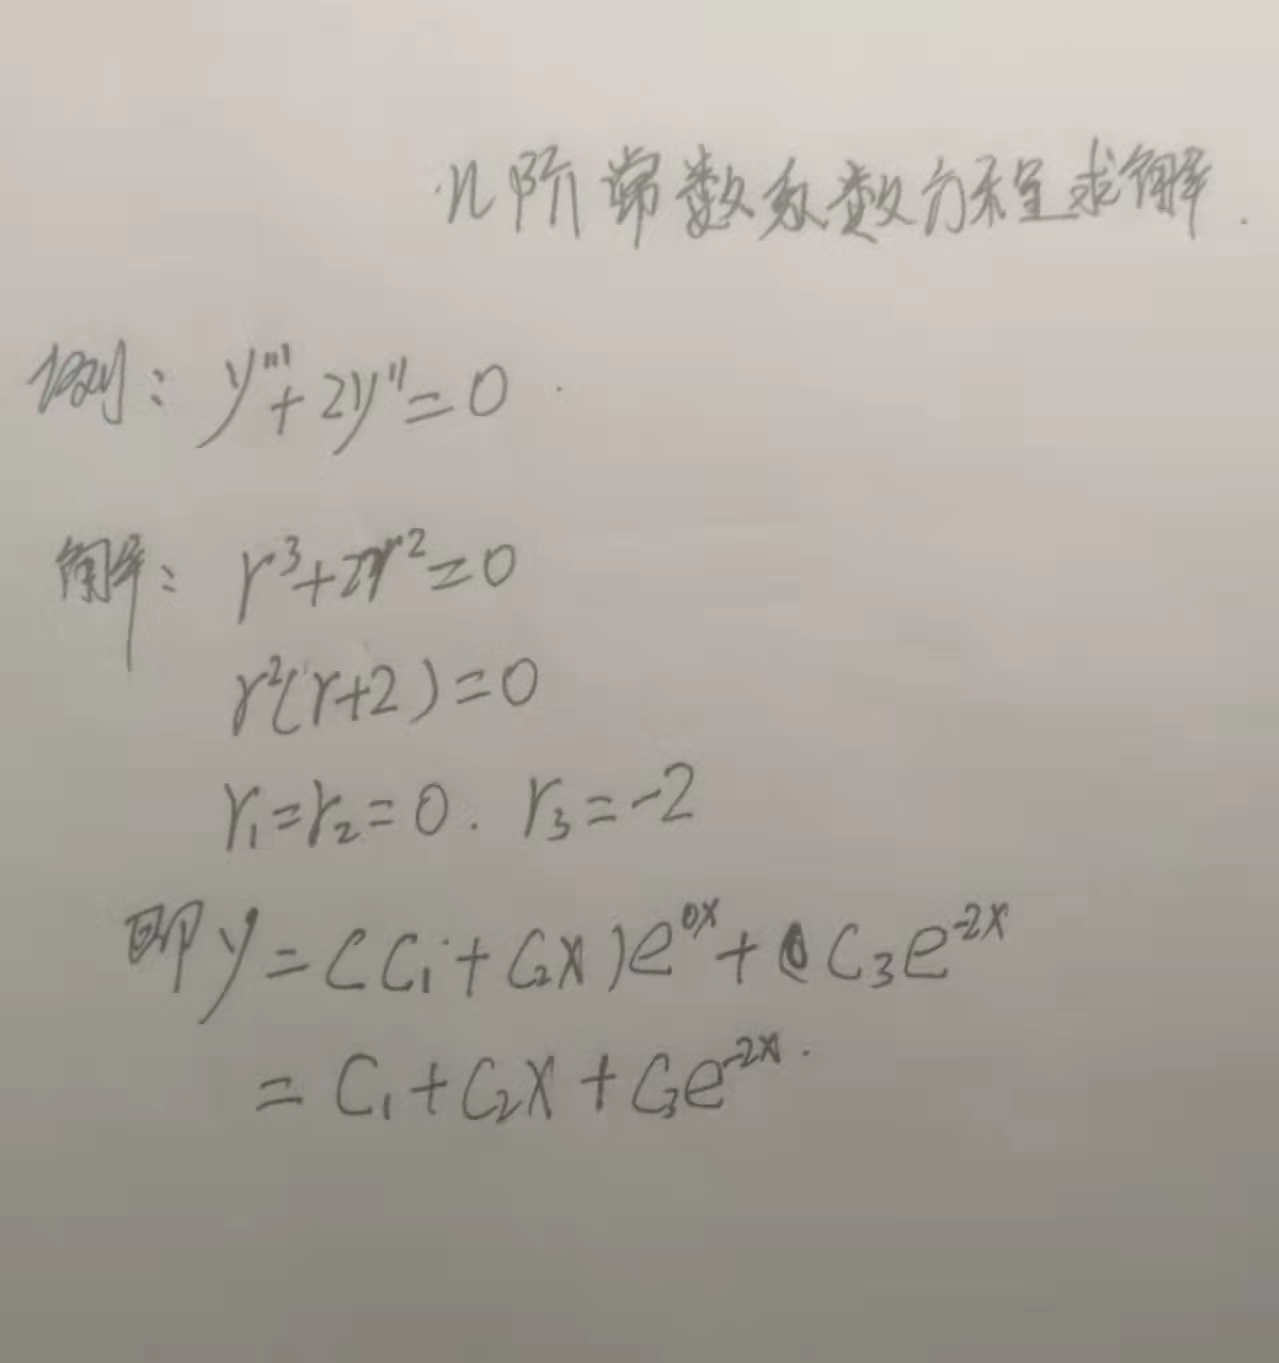 n阶常数系数方程求解.
例: y'''+2y''=0.
解: r³+2r²=0
r²(r+2)=0
r₁=r₂=0. r₃=-2
即y=(C₁+C₂x)e⁰ˣ+C₃e⁻²ˣ
=C₁+C₂x+C₃e⁻²ˣ.